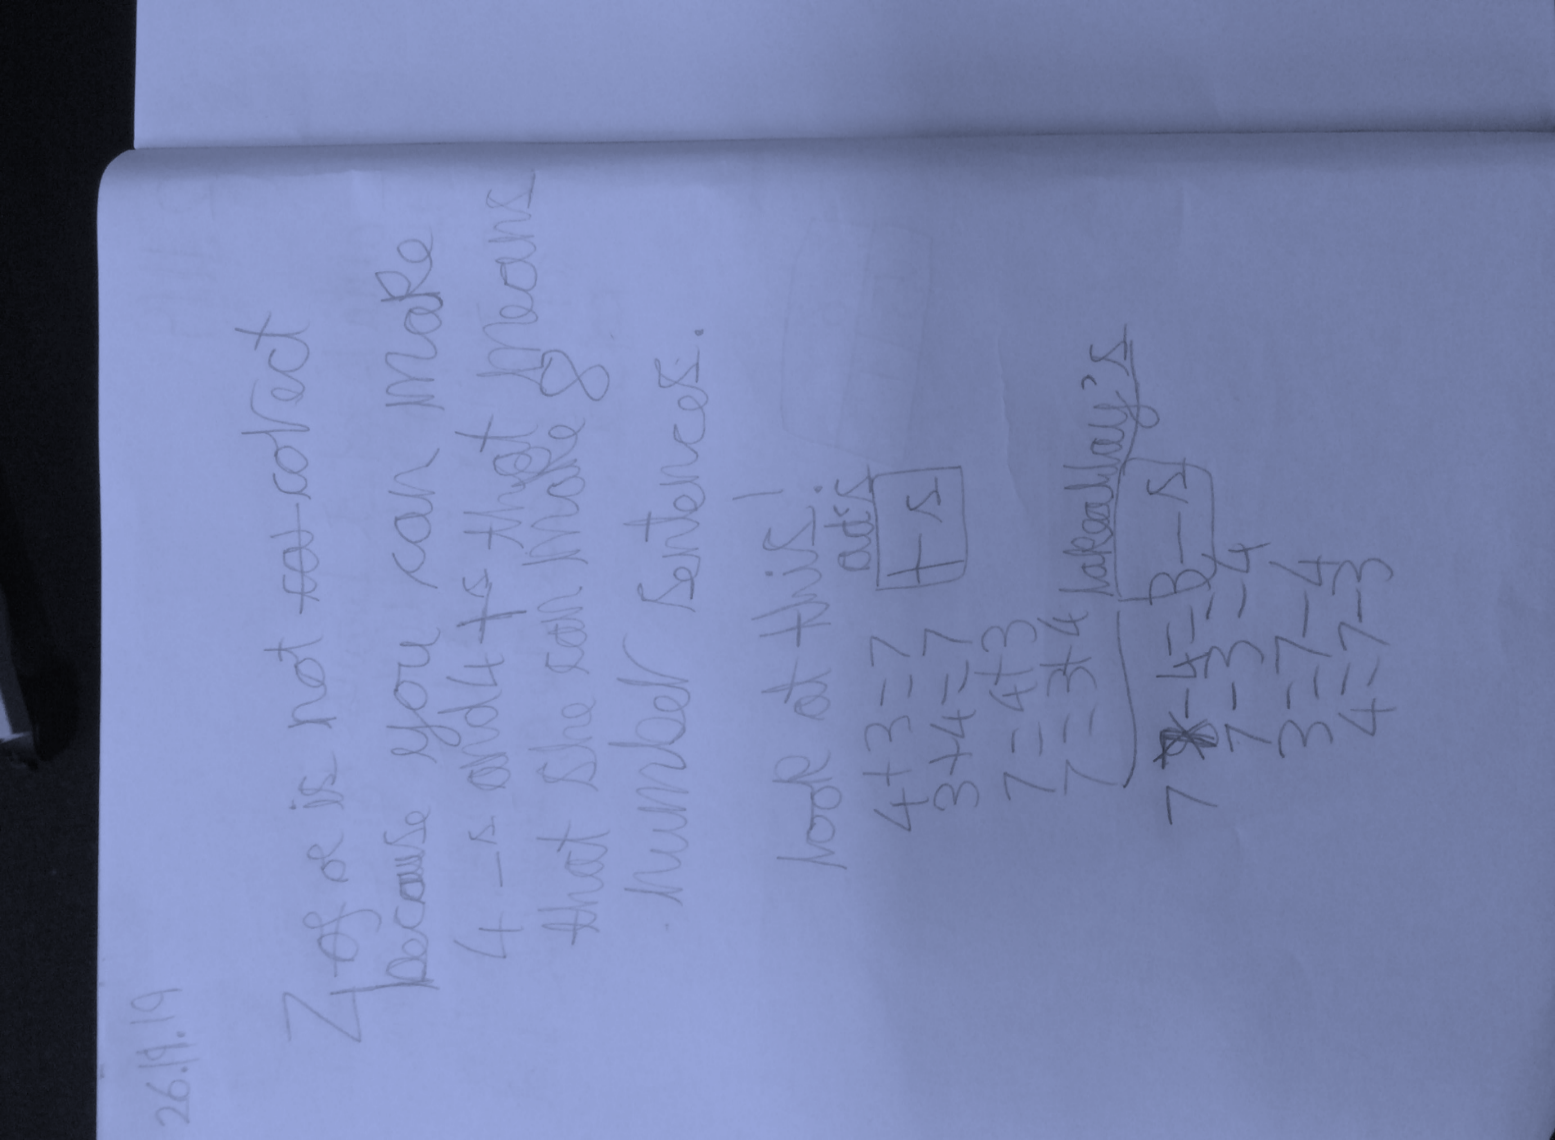 26.19.19
Zofoe is not cor corect
because you can make
4 -s and 4 +s that means
that she can make 8
number sentences.
look at this!
ad's
4+3=7
+ s
3+4=7
7=4+3
7=3+4
takeaway's
7-4=3
-s
7-3=4
3=7-4
4=7-3